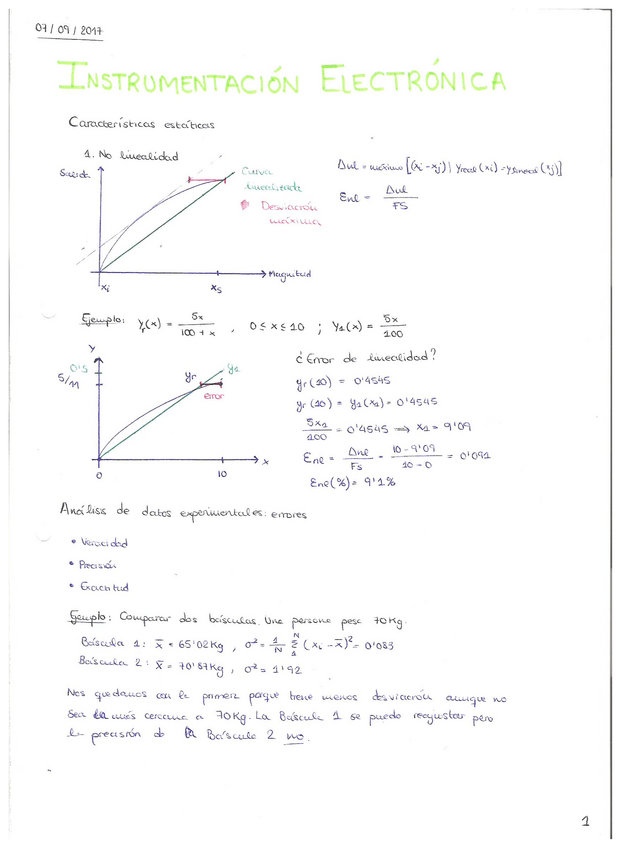 07/09/2017
INSTRUMENTACIÓN ELECTRÓNICA
Características estáticas
1. No linealidad
Salida
Curva
linealizada
Desviación
máxima
Magnitud
xi
xs
Δnl = máximo [(xi - xj) | yreal (xi) = ylineal (xj)]
Enl = Δnl / FS
Ejemplo: yr(x) = 5x / 100 + x , 0 ≤ x ≤ 10 ; y1(x) = 5x / 100
y
0'5
5/11
yr
y1
error
x
0
10
¿Error de linealidad?
yr(10) = 0'4545
yr(10) = y1(x1) = 0'4545
5x1 / 100 = 0'4545 ⇒ x1 = 9'09
Enl = Δnl / Fs = 10 - 9'09 / 10 - 0 = 0'091
Enl(%) = 9'1%
Análisis de datos experimentales: errores
• Veracidad
• Precisión
• Exactitud
Ejemplo: Comparar dos básculas. Una persona pesa 70Kg.
Báscula 1: x̄ = 65'02Kg , σ² = 1/N Σ (xi - x̄)² = 0'083
N
1
Báscula 2: x̄ = 70'87Kg , σ² = 1'92
Nos quedamos con la primera porque tiene menos desviación aunque no
sea la más cercana a 70Kg. La Báscula 1 se puede reajustar pero
la precisión de la Báscula 2 no.
1